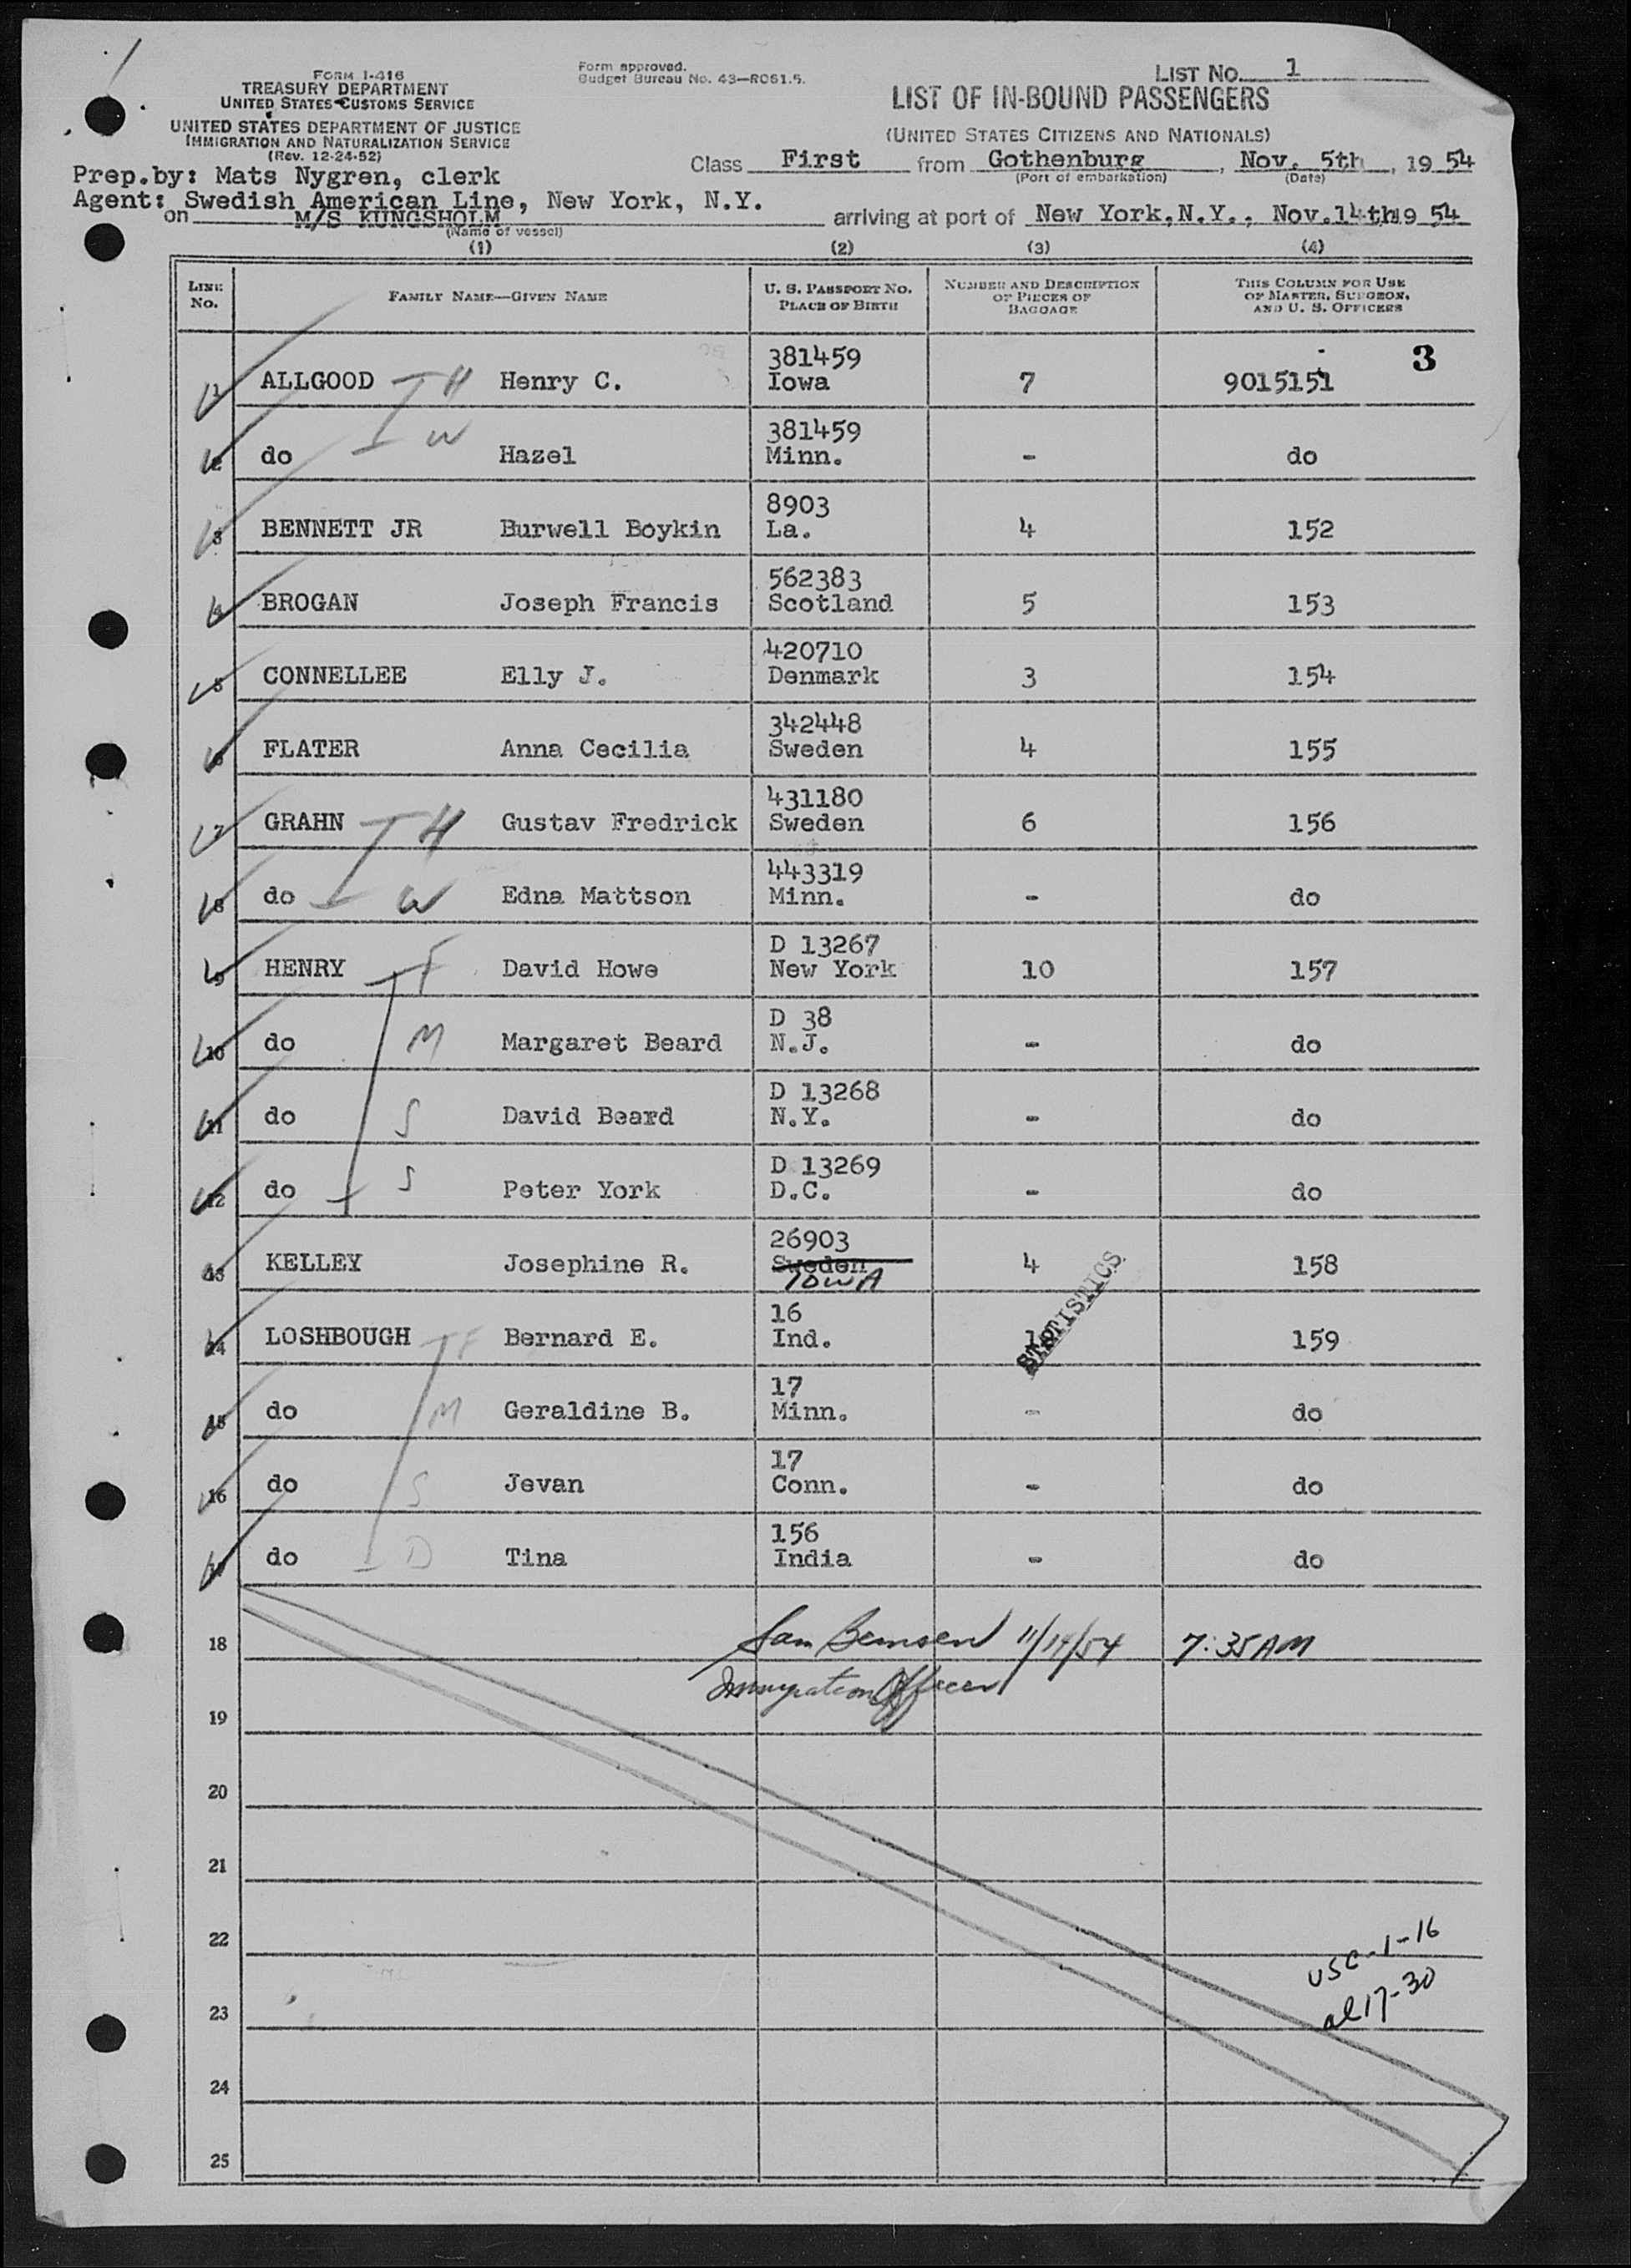 FORM I-416
TREASURY DEPARTMENT
UNITED STATES CUSTOMS SERVICE
UNITED STATES DEPARTMENT OF JUSTICE
IMMIGRATION AND NATURALIZATION SERVICE
(Rev. 12-24-52)
Form approved.
Budget Bureau No. 43—R061.5.
LIST NO. 1
LIST OF IN-BOUND PASSENGERS
(UNITED STATES CITIZENS AND NATIONALS)
Prep.by: Mats Nygren, clerk
Class First from Gothenburg, Nov. 5th, 19 54
(Port of embarkation) (Date)
Agent: Swedish American Line, New York, N.Y.
on M/S KUNGSHOLM arriving at port of New York, N.Y., Nov.14th 19 54
(Name of vessel)
(1) (2) (3) (4)
LINE NO. FAMILY NAME—GIVEN NAME U. S. PASSPORT NO. PLACE OF BIRTH NUMBER AND DESCRIPTION OF PIECES OF BAGGAGE THIS COLUMN FOR USE OF MASTER, SURGEON, AND U. S. OFFICERS
3
381459
1 ALLGOOD H Henry C. Iowa 7 9015151
381459
2 do W Hazel Minn. - do
8903
3 BENNETT JR Burwell Boykin La. 4 152
562383
4 BROGAN Joseph Francis Scotland 5 153
420710
5 CONNELLEE Elly J. Denmark 3 154
342448
6 FLATER Anna Cecilia Sweden 4 155
431180
7 GRAHN H Gustav Fredrick Sweden 6 156
443319
8 do W Edna Mattson Minn. - do
D 13267
9 HENRY F David Howe New York 10 157
D 38
10 do M Margaret Beard N.J. - do
D 13268
11 do S David Beard N.Y. - do
D 13269
12 do S Peter York D.C. - do
26903
13 KELLEY Josephine R. Sweden 4 158
IOWA
STATISTICS
16
14 LOSHBOUGH F Bernard E. Ind. 159
17
15 do M Geraldine B. Minn. - do
17
16 do S Jevan Conn. - do
156
17 do D Tina India - do
18 Sam Bernsen 11/14/54 7:35AM
Immigration Officer
19
20
21
22
USC-1-16
23
al 17-30
24
25